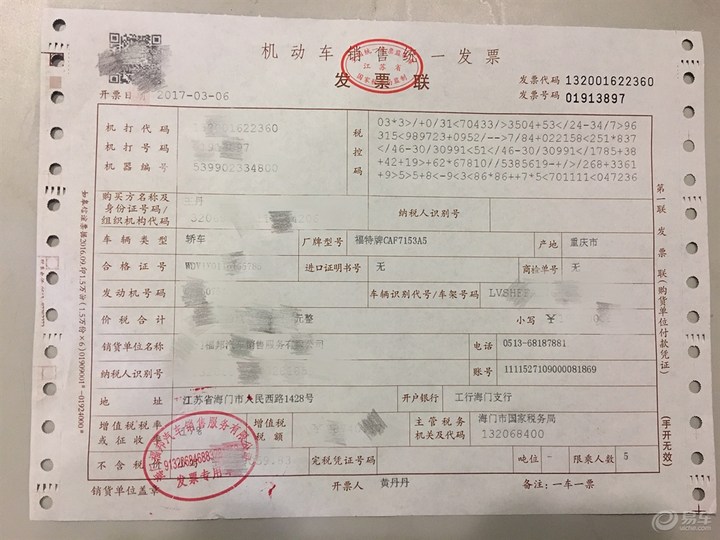 机动车销售统一发票
发票联
开票日 2017-03-06
发票代码 132001622360
发票号码 01913897
机打代码 2001622360
机打号码 897
机器编号 539902334800
税控码
03*3>/+0/31<70433/>3504+53</24-34/7>96
315<989723+0952/-->7/84+022158<251*837
/<46-30/09991<51<46-30/30991</1785+38
+42+19>+62*67810//5385619-+/>/268+3361
+9>5>5+8<-9<3<86*86++7*5<701111<047236
购买方名称及
身份证号码/
组织机构代码
纳税人识别号
车辆类型 轿车 厂牌型号 福特牌CAF7153A5 产地 重庆市
合格证号 进口证明书号 无 商检单号 无
发动机号码 车辆识别代号/车架号码 LVSHF
价税合计 元整 小写
销货单位名称 销售服务有限公司 电话 0513-68187881
纳税人识别号 账号 1111527109000081869
地址 江苏省海门市人民西路1428号 开户银行 工行海门支行
增值税税率
或征收
增值税
税额
主管税务
机关及代码
海门市国家税务局
132068400
不含税 完税凭证号码 吨位 - 限乘人数 5
销货单位盖章 开票人 黄丹丹 备注:一车一票
第一联 发票联(购货单位付款凭证)
(手开无效)
江苏省
发票专用章
易车